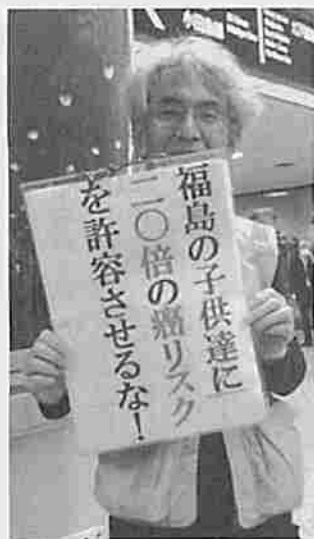 福島の子供達に
二〇倍の癌リスク
を許容させるな!